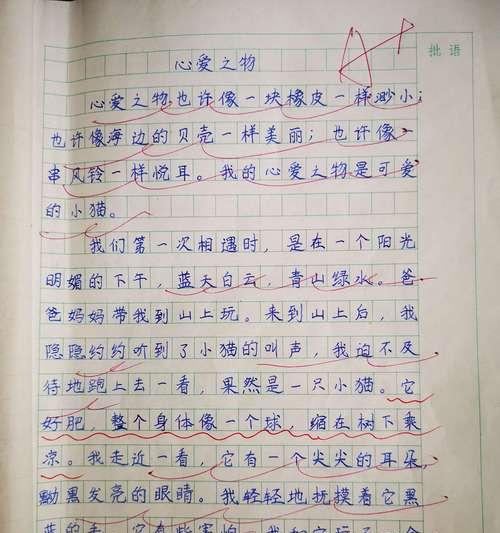 批语
心爱之物
心爱之物也许像一块橡皮一样渺小；
也许像海边的贝壳一样美丽；也许像一
串风铃一样悦耳。我的心爱之物是可爱
的小猫。
我们第一次相遇时，是在一个阳光
明媚的下午，蓝天白云，青山绿水。爸
爸妈妈带我到山上玩。来到山上后，我
隐隐约约听到了小猫的叫声，我迫不及
待地跑上去一看，果然是一只小猫。它
好肥，整个身体像一个球，缩在树下乘
凉。我走近一看，它有一个尖尖的耳朵，
黝黑发亮的眼睛。我轻轻地抚摸着它黑
蓝的毛，它有些害怕，我和它玩了一会